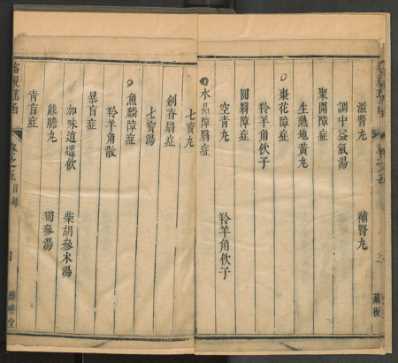 滋腎丸 補腎丸
調中益氣湯
聚開障症
生熟地黃丸
棗花障症
羚羊角飲子
圓翳障症
空青丸 羚羊角飲子
水晶障翳症
七寶丸
劍脊翳症
七寶湯
魚鱗障症
羚羊角散
暴盲症
加味逍遙飲 柴胡參朮湯
熊膽丸 蜀參湯
青盲症